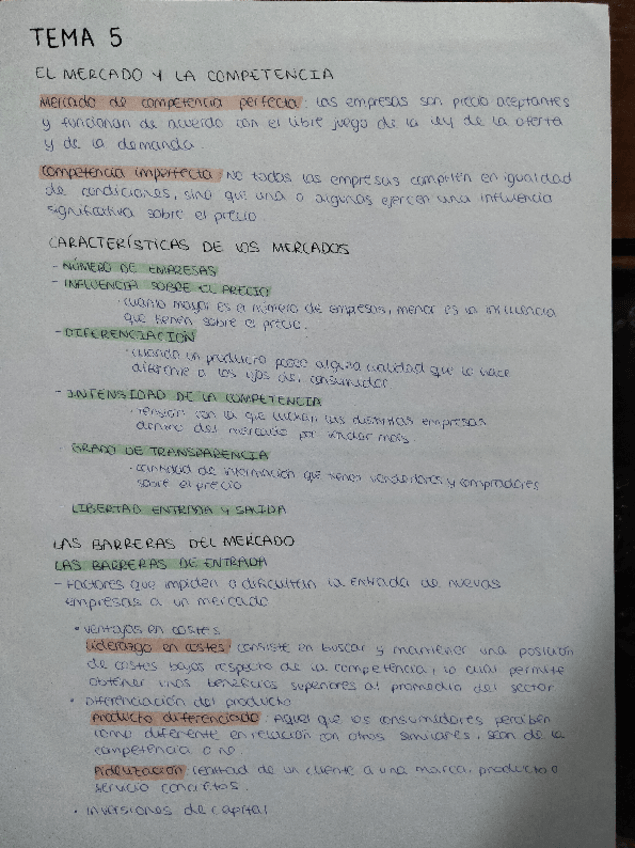 TEMA 5
EL MERCADO Y LA COMPETENCIA
Mercado de competencia perfecta: las empresas son precio aceptantes
y funcionan de acuerdo con el libre juego de la ley de la oferta
y de la demanda.
Competencia imperfecta: No todas las empresas compiten en igualdad
de condiciones, sino que una o algunas ejercen una influencia
significativa sobre el precio.
CARACTERÍSTICAS DE LOS MERCADOS
- NÚMERO DE EMPRESAS
- INFLUENCIA SOBRE EL PRECIO
· cuanto mayor es el número de empresas, menor es la influencia
que tienen sobre el precio.
- DIFERENCIACIÓN
· cuando un producto posee alguna cualidad que lo hace
diferente a los ojos del consumidor
- INTENSIDAD DE LA COMPETENCIA
· tensión con la que luchan las distintas empresas
dentro del mercado por vender más.
GRADO DE TRANSPARENCIA
· cantidad de información que tienen vendedores y compradores
sobre el precio
LIBERTAD ENTRADA Y SALIDA
LAS BARRERAS DEL MERCADO
LAS BARRERAS DE ENTRADA
- Factores que impiden o dificultan la entrada de nuevas
empresas a un mercado
• ventajas en costes
Liderazgo en costes: consiste en buscar y mantener una posición
de costes bajos respecto de la competencia, lo cual permite
obtener unos beneficios superiores al promedio del sector
• Diferenciación del producto
Producto diferenciado: Aquel que los consumidores perciben
como diferente en relación con otros similares, sean de la
competencia o no
Fidelización: lealtad de un cliente a una marca, producto o
servicio concretos.
• Inversiones de capital